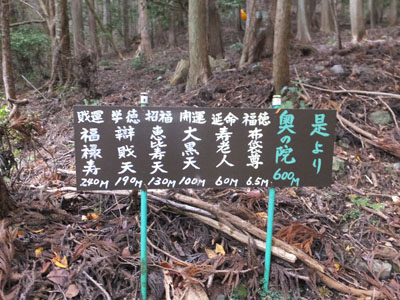 是より
奥の院
600m
福徳
布袋尊
6.5m
延命
寿老人
60m
開運
大黒天
100m
招福
恵比寿天
130m
学徳
辯財天
190m
財運
福禄寿
240m